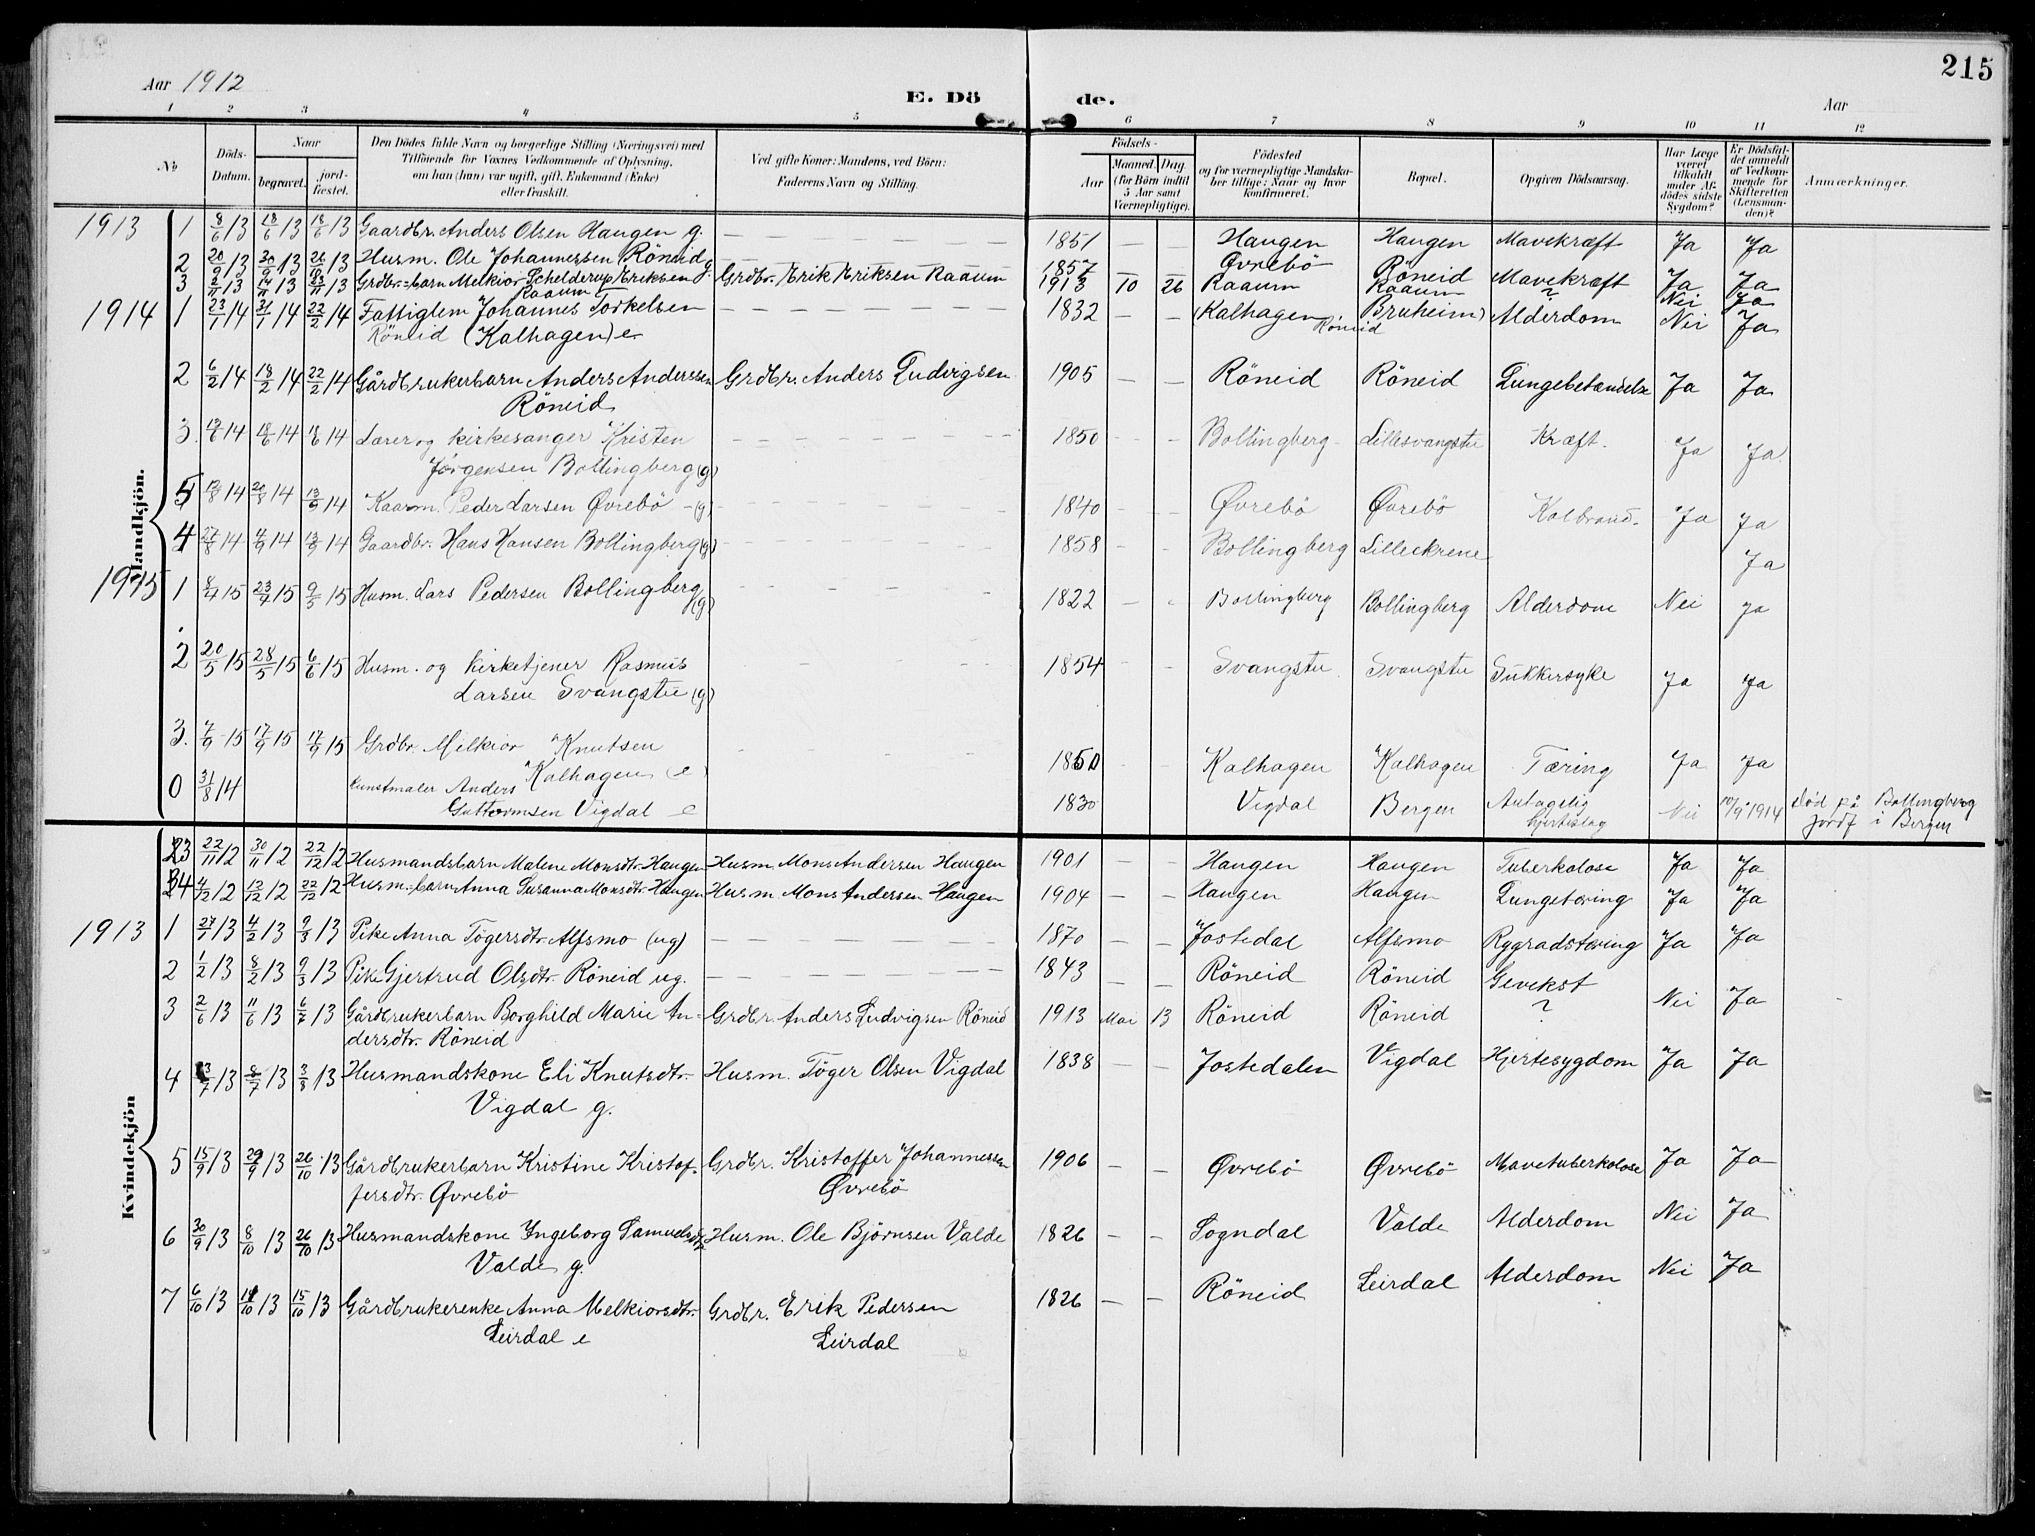 215
Aar 1912
E. Dö de.
Aar
1 2 3 4 5 6 7 8 9 10 11 12
No
Döds-Datum.
Naar
begravet.
jord-fæstet.
Den Dödes fulde Navn og borgerlige Stilling (Næringsvei) med
Tilföiende for Voxnes Vedkommende af Oplysning,
om han (hun) var ugift, gift, Enkemand (Enke)
eller fraskilt.
Ved gifte Koner: Mandens, ved Börn:
Faderens Navn og Stilling.
Födsels-
Aar
Maaned. Dag.
(for Börn indtil
5 Aar samt
Værnepligtige).
Födested
og for værnepligtige Mandska-
ber tillige: Naar og hvor
konfirmeret.
Bopæl.
Opgiven Dödsaarsag.
Har Læge
været
tilkaldt
under Af-
dödes sidste
Sygdom?
Er Dödsfal-
det anmeldt
af Vedkom-
mende for
Skifteretten
(Lensman-
den)?
Anmærkninger.
Mandkjön.
1913 1 8/6 13 18/6 13 18/6 13 Gaardbr. Anders Olsen Haugen g. — 1851 — — Haugen Haugen Mavekræft Ja Ja
2 20/9 13 30/9 13 26/10 13 Husm. Ole Johannessen Röneid g. — 1857 — — Øvrebö Röneid Mavekræft Ja Ja
3 2/11 13 14/11 13 23/11 13 Grdbr.-barn Melkior Schelderup Eriksen Raaum Grdbr. Erik Eriksen Raaum 1913 10 26 Raaum Raaum ? Nei Ja
1914 1 23/1 14 31/1 14 22/2 14 Fattiglem Johannes Torkelsen 1832 — — (Kalhagen Bruheim) Alderdom Nei Ja
Röneid (Kalhagen) e Röneid
2 6/2 14 18/2 14 22/2 14 Gårdbrukerbarn Anders Anderssen Grdbr. Anders Ludvigsen 1905 — — Röneid Röneid Lungebetændelse Ja Ja
Röneid
3. 14 18/6 14 18/6 14 Lærer og kirkesanger Kristen — 1850 - - Bollingberg Lillesvangstu Kræft. Ja Ja
Jörgensen Bollingberg (g)
5 14 20/8 14 13/9 14 Kaarm. Peder Larsen Øvrebö - (g) — 1840 Øvrebö Øvrebö Kolbrand. Ja Ja
4 27/8 14 4/9 14 13/9 14 Gaardbr. Hans Hansen Bollingberg (g) 1858 - - Bollingberg Lilleekrene Ja
1915 1 8/4 15 23/4 15 9/5 15 Husm. Lars Pedersen Bollingberg (g) 1822 - - Bollingberg Bollingberg Alderdom Nei Ja
2 20/5 15 28/5 15 6/6 15 Husm. og kirketjener Rasmus 1854 - - Svangstu Svangstu Sukkersyke Ja Ja
Larsen Svangstu (g)
3. 7/9 15 17/9 15 17/9 15 Grdbr. Melkior Knutsen 1850 - - Kalhagen Kalhagen Tæring Ja Ja
Kalhagen (e)
0 31/8 14 Kunstmaler Anders 1830 Vigdal Bergen Antagelig Nei 10/9 1914 död på Bollingberg
Guttormsen Vigdal e hjerteslag jordf i Bergen
Kvindekjön
3 22/11 12 30/11 12 22/12 12 Husmandsbarn Malene Monsdtr. Haugen Husm. Mons Andersen Haugen 1901 — — Haugen Haugen Tuberkolose Ja Ja
4 4/12 12 12/12 12 22/12 12 Husm.-barn Anna Susanna Monsdtr. Haugen Husm. Mons Andersen Haugen 1904 — — Haugen Haugen Lungetæring Ja Ja
1913 1 27/1 13 4/2 13 9/3 13 Pike Anna Tögersdtr. Alfsmo (ug) — 1870 — — Jostedal Alfsmo Rygradstæring Ja Ja
2 1/2 13 8/2 13 9/3 13 Pike Gjertrud Olsdtr. Röneid ug. — 1843 — — Röneid Röneid Gevekst
3 2/6 13 11/6 13 6/7 13 Gårdbrukerbarn Borghild Marie An- Grdbr. Anders Ludvigsen Röneid 1913 Mai 13 Röneid Röneid ? Nei Ja
dersdtr. Röneid
4 3/7 13 8/7 13 3/8 13 Husmandskone Eli Knutsdtr. Husm. Töger Olsen Vigdal 1838 — — Jostedalen Vigdal Hjertesygdom Ja Ja
Vigdal g.
5 15/9 13 29/9 13 26/10 13 Gårdbrukerbarn Kristine Kristof- Grdbr. Kristoffer Johannessen 1906 — — Øvrebö Øvrebö Mavetuberkolose Ja Ja
fersdtr. Øvrebö Øvrebö
6 30/9 13 8/10 13 26/10 13 Husmandskone Ingeborg Samuelsdtr. Husm. Ole Björnsen Valde 1826 — — Sogndal Valde Alderdom Nei Ja
Valde g.
7 6/10 13 14/10 13 15/10 13 Gårdbrukerenke Anna Melkiorsdtr. Grdbr. Erik Pedersen 1826 — — Röneid Leirdal Alderdom Nei Ja
Leirdal e Leirdal